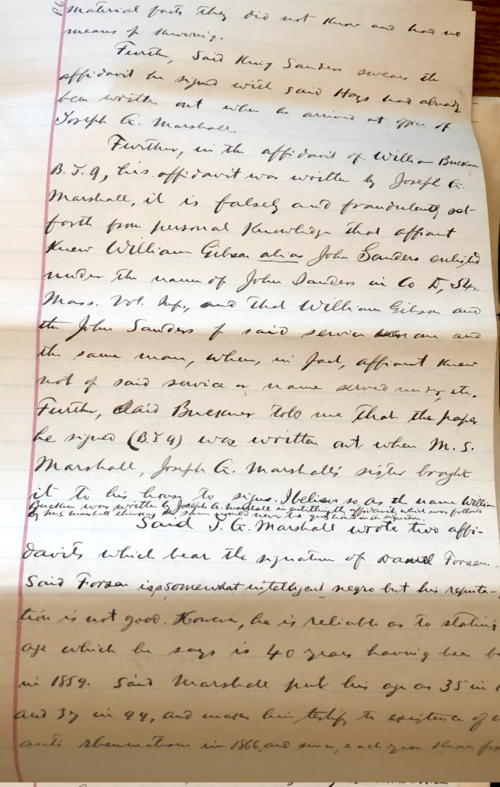 material facts they did not know and had no
means of knowing.
Further, said King Sanders swears the
affidavit he signed with said Hays had already
been written out when he arrived at office of
Joseph G. Marshall.
Further, in the affidavit of William Buckner
B.J.9, his affidavit was written by Joseph G.
Marshall, it is falsely and fraudulently set
forth from personal knowledge that affiant
knew William Gibson alias John Sanders enlisted
under the name of John Sanders in Co. D, 54
Mass. Vol. Inf., and that William Gibson and
the John Sanders of said service are one and
the same man, when, in fact, affiant knew
not of said service or name served under, etc.
Further, said Buckner told me that the paper
he signed (B.J.9) was written out when M. S.
Marshall, Joseph G. Marshall's sister brought
it to his house to sign. I believe so as the name William
Buckner was written by Joseph G. Marshall in the affidavit which was
by M.S. Marshall
Said J. G. Marshall wrote two affi-
davits which bear the signature of Daniel Forsen.
Said Forsen is a somewhat intelligent negro but his reputa-
tion is not good. However, he is reliable as to stating
age which he says is 40 years having been
in 1859. Said Marshall put his age as 35 in
and 37 in 94, and makes him testify to existence of
rheumatism in 1866, and since, each year